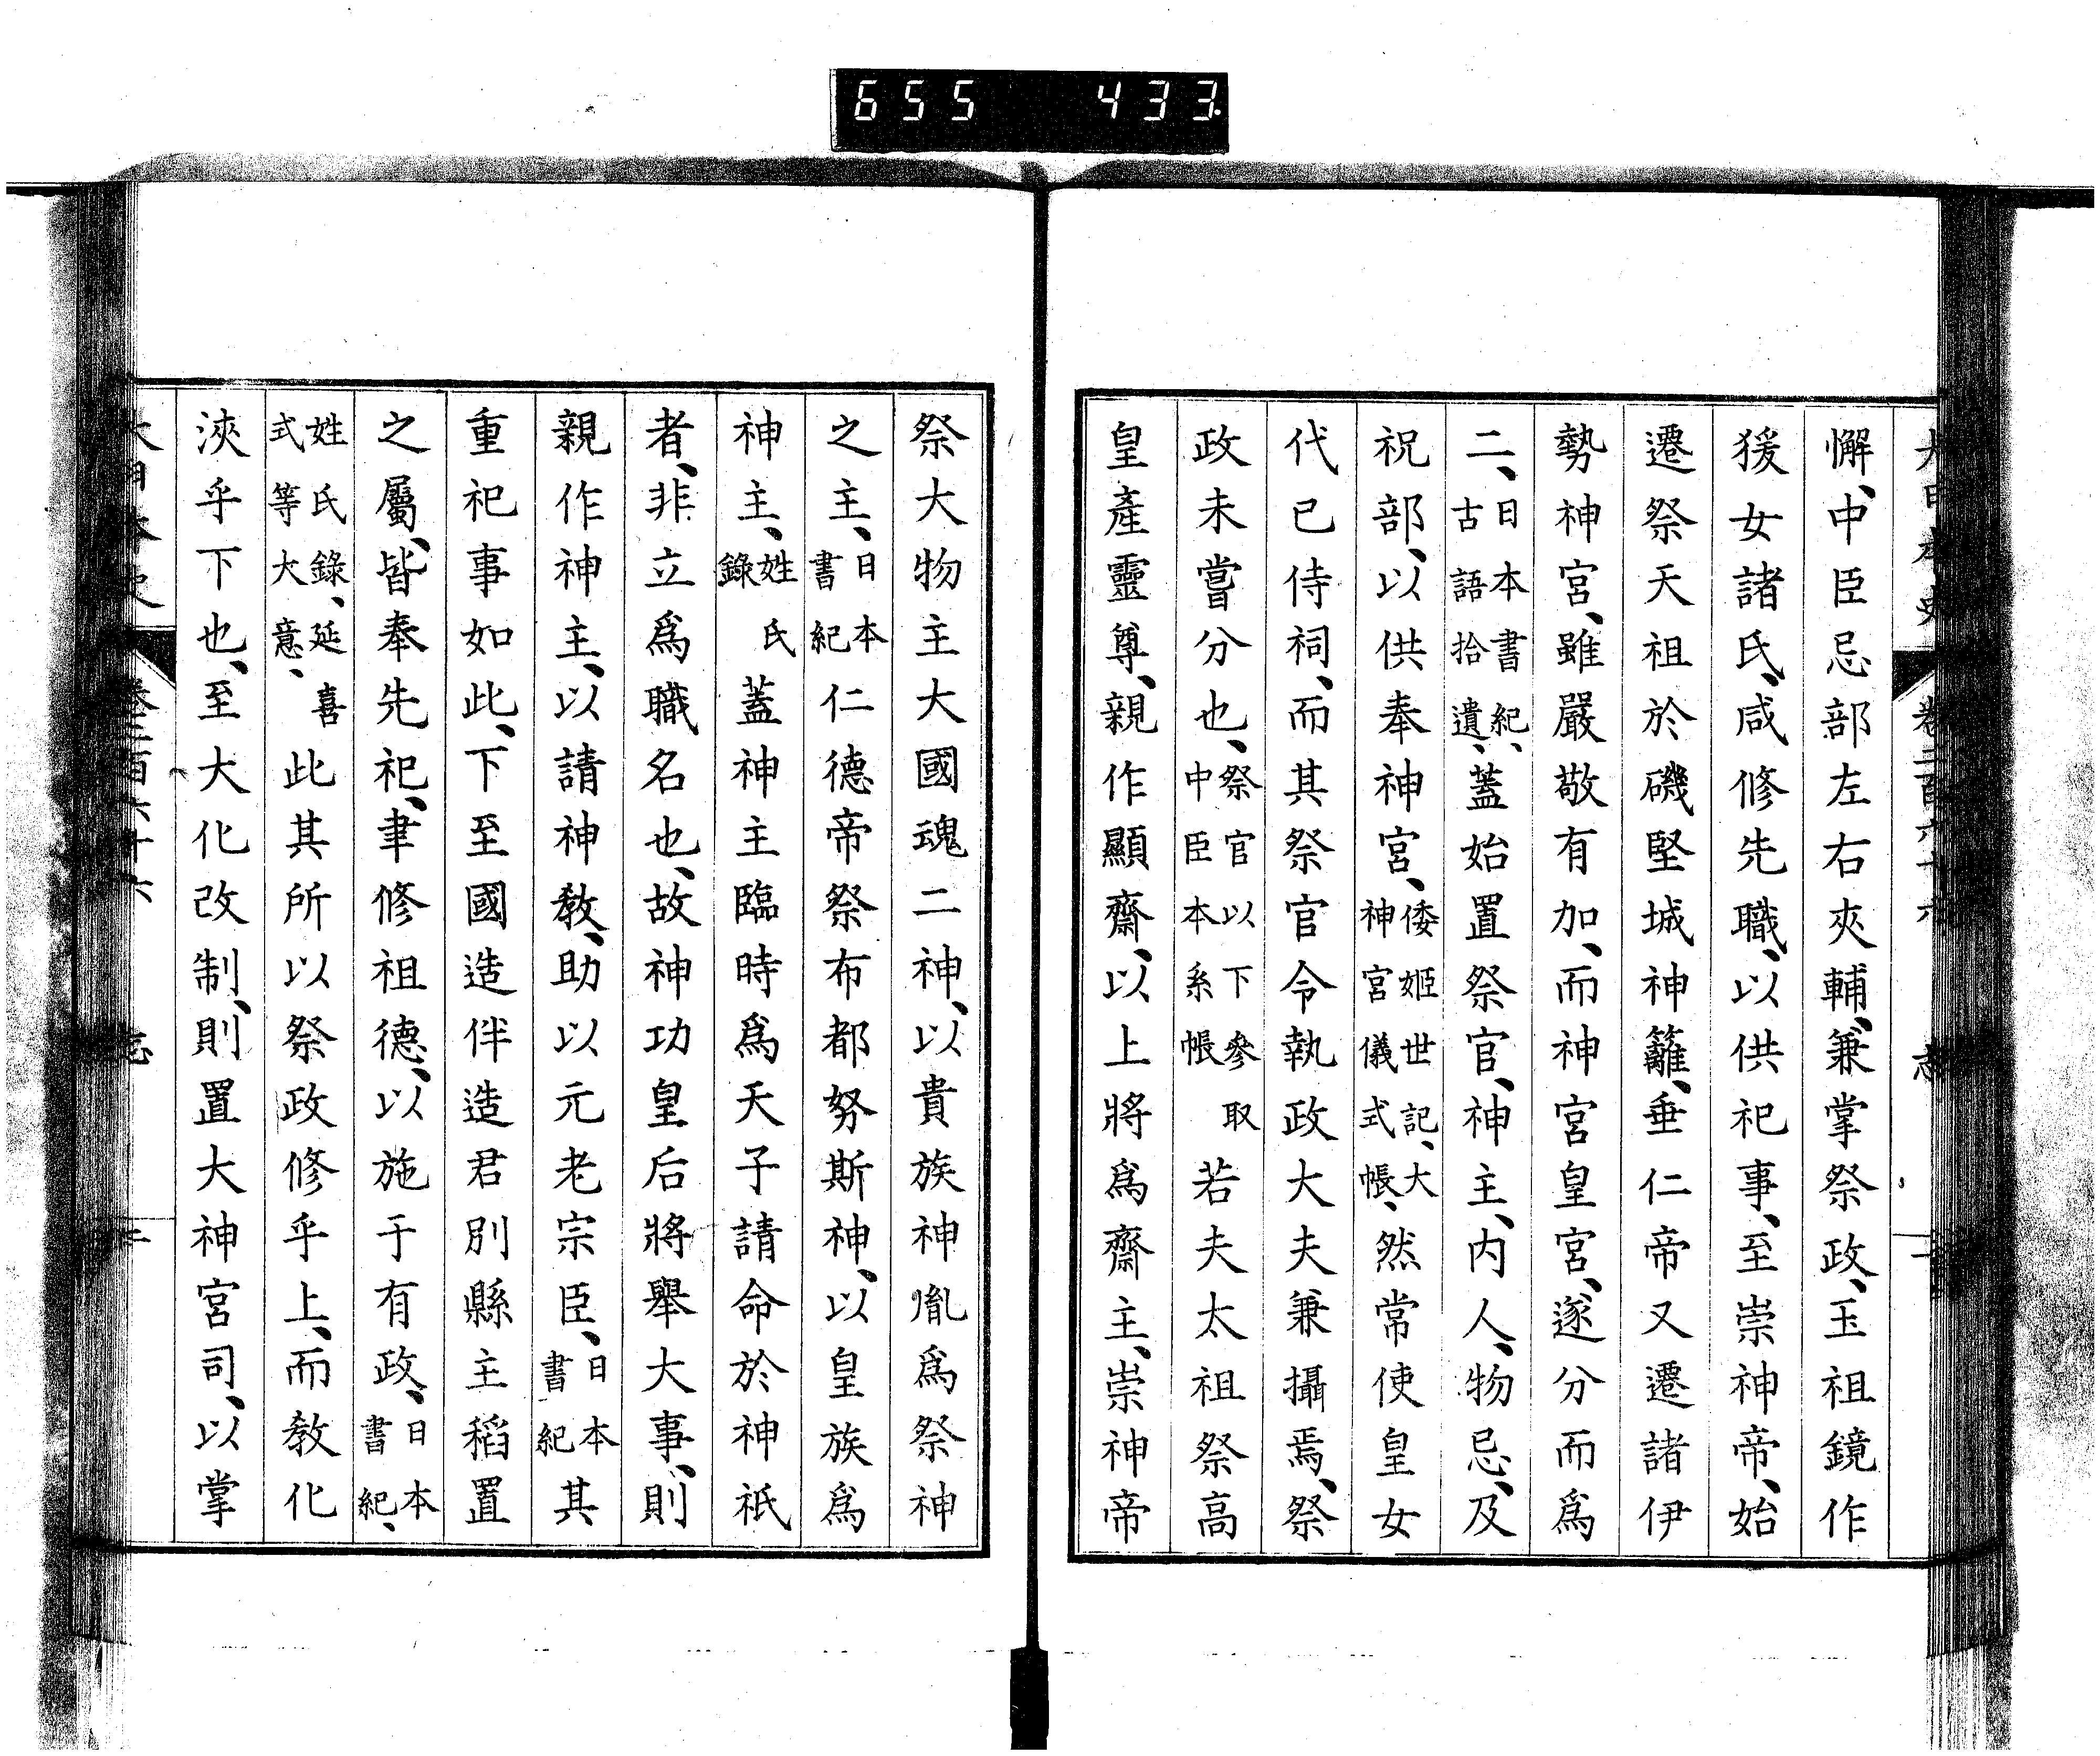 655 433.
懈、中臣忌部左右夾輔、兼掌祭政、玉祖鏡作
猨女諸氏、咸修先職、以供祀事、至崇神帝、始
遷祭天祖於磯堅城神籬、垂仁帝又遷諸伊
勢神宮、雖嚴敬有加、而神宮皇宮、遂分而爲
二、日本書紀、古語拾遺、蓋始置祭官、神主、內人、物忌、及
祝部、以供奉神宮、倭姬世記、大神宮儀式帳、然常使皇女
代已侍祠、而其祭官令執政大夫兼攝焉、祭
政未嘗分也、祭官以下參取中臣本系帳若夫太祖祭高
皇產靈尊、親作顯齋、以上將爲齋主、崇神帝
祭大物主大國魂二神、以貴族神胤爲祭神
之主、日本書紀仁德帝祭布都努斯神、以皇族爲
神主、姓氏錄蓋神主臨時爲天子請命於神祇
者、非立爲職名也、故神功皇后將舉大事、則
親作神主、以請神教、助以元老宗臣、日本書紀其
重祀事如此、下至國造伴造君別縣主稻置
之屬、皆奉先祀、聿修祖德、以施于有政、日本書紀、
姓氏錄、延喜式等大意、此其所以祭政修乎上、而教化
浹乎下也、至大化改制、則置大神宮司、以掌